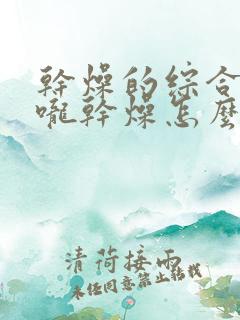 幹燥的綜合
嚨幹燥怎麼
清荷接雨
未经同意禁止转载